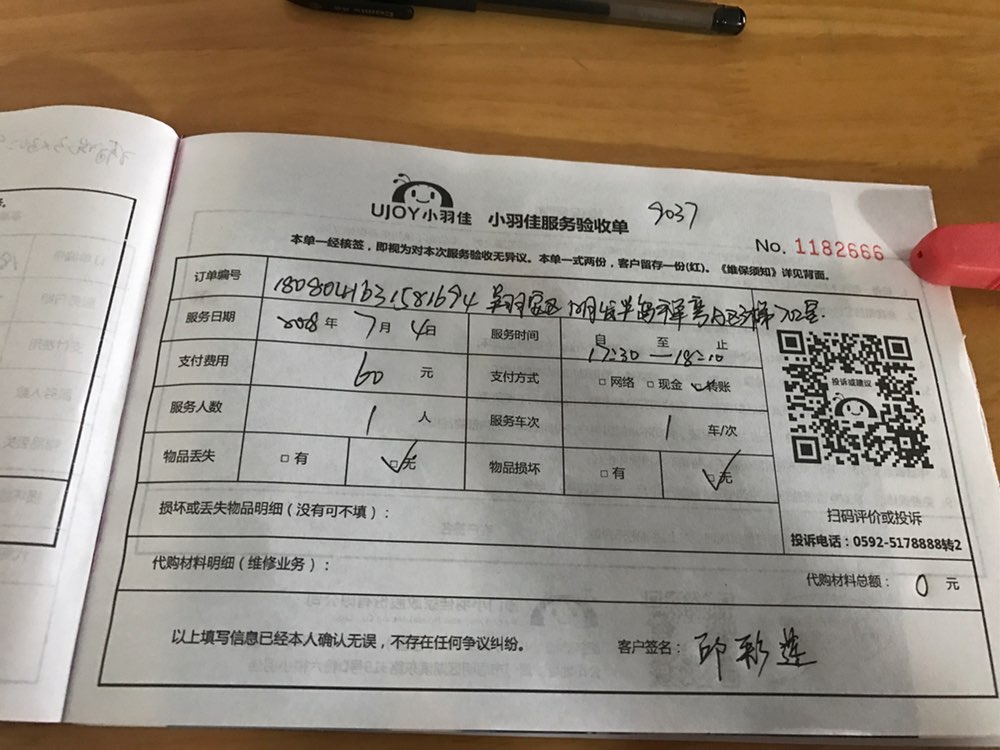 UJOY小羽佳 小羽佳服务验收单 9037
No. 1182666
本单一经核签，即视为对本次服务验收无异议。本单一式两份，客户留存一份(红)。《维保须知》详见背面。
订单编号 1808041631581694
服务日期 2018年7月4日 服务时间 自 至 止 17:30—18:10
支付费用 60元 支付方式 □网络 □现金 ☑转账
服务人数 1人 服务车次 1 车/次
物品丢失 □有 ☑无 物品损坏 □有 ☑无
投诉或建议
扫码评价或投诉
损坏或丢失物品明细（没有可不填）：
投诉电话：0592-5178888转2
代购材料明细（维修业务）： 代购材料总额：0元
以上填写信息已经本人确认无误，不存在任何争议纠纷。 客户签名：邱彩莲